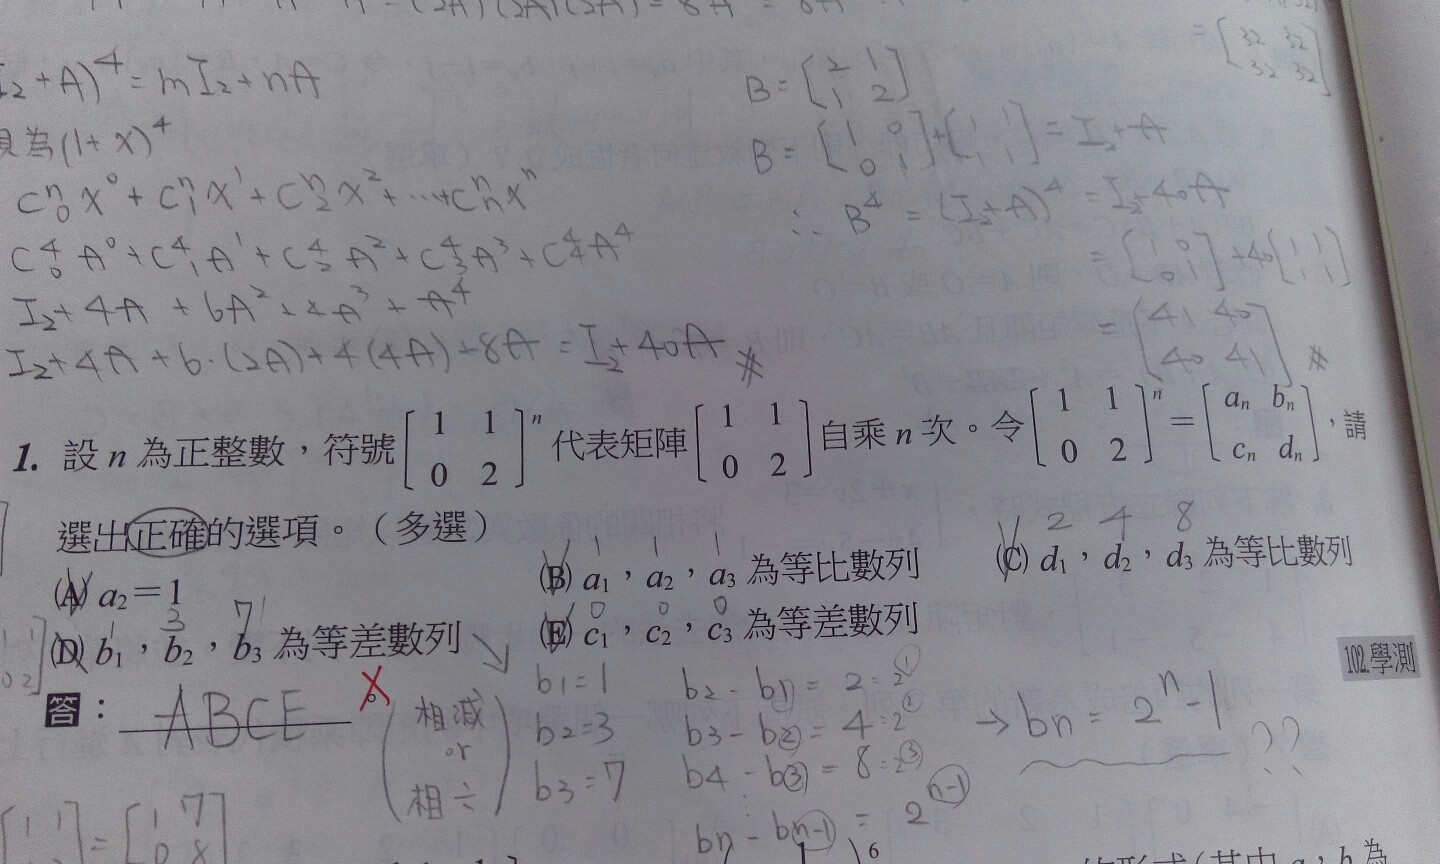 I₂+A)⁴=mI₂+nA
為(1+x)⁴
Cⁿ₀x⁰+Cⁿ₁x¹+Cⁿ₂x²+…+Cⁿₙxⁿ
C⁴₀A⁰+C⁴₁A¹+C⁴₂A²+C⁴₃A³+C⁴₄A⁴
I₂+4A+6A²+4A³+A⁴
I₂+4A+6·(2A)+4(4A)+8A=I₂+40A #
=[32 32; 32 32]
B=[2 1; 1 2]
B=[1 0; 0 1]+[1 1; 1 1]=I₂+A
∴B⁴=(I₂+A)⁴=I₂+40A
=[1 0; 0 1]+40[1 1; 1 1]
=[41 40; 40 41] #
1. 設 n 為正整數，符號[1 1; 0 2]ⁿ代表矩陣[1 1; 0 2]自乘 n 次。令[1 1; 0 2]ⁿ=[aₙ bₙ; cₙ dₙ]，請
選出正確的選項。（多選）
(A) a₂＝1
1 1 1
(B) a₁，a₂，a₃ 為等比數列
2 4 8
(C) d₁，d₂，d₃ 為等比數列
1 3 7
(D) b₁，b₂，b₃ 為等差數列
0 0 0
(E) c₁，c₂，c₃ 為等差數列
102.學測
答：ABCE。
(相減 or 相÷)
b1=1
b2=3
b3=7
b2-b1=2=2①
b3-b2=4=2②
b4-b3=8=2③
bn-bn-1=2ⁿ⁻¹
→bn=2ⁿ-1 ??
[1 1
=[1 7; 0 8]
6